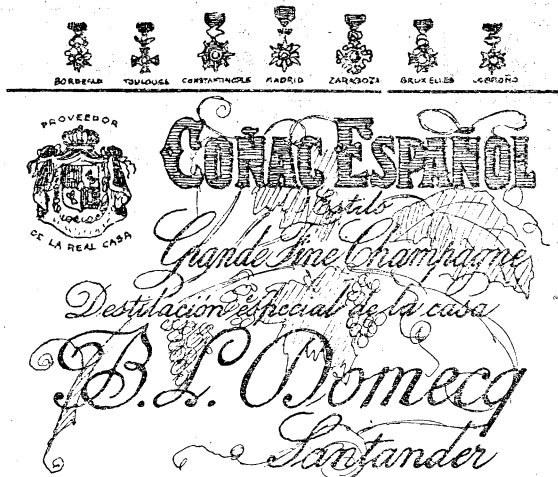 BORDEAUX TOULOUSE CONSTANTINOPLE MADRID ZARAGOZA BRUXELLES LOGROÑO
PROVEEDOR
DE LA REAL CASA
COÑAC ESPAÑOL
Estilo
Grande Fine Champagne
Destilación especial de la casa
B. L. Domecq
Santander